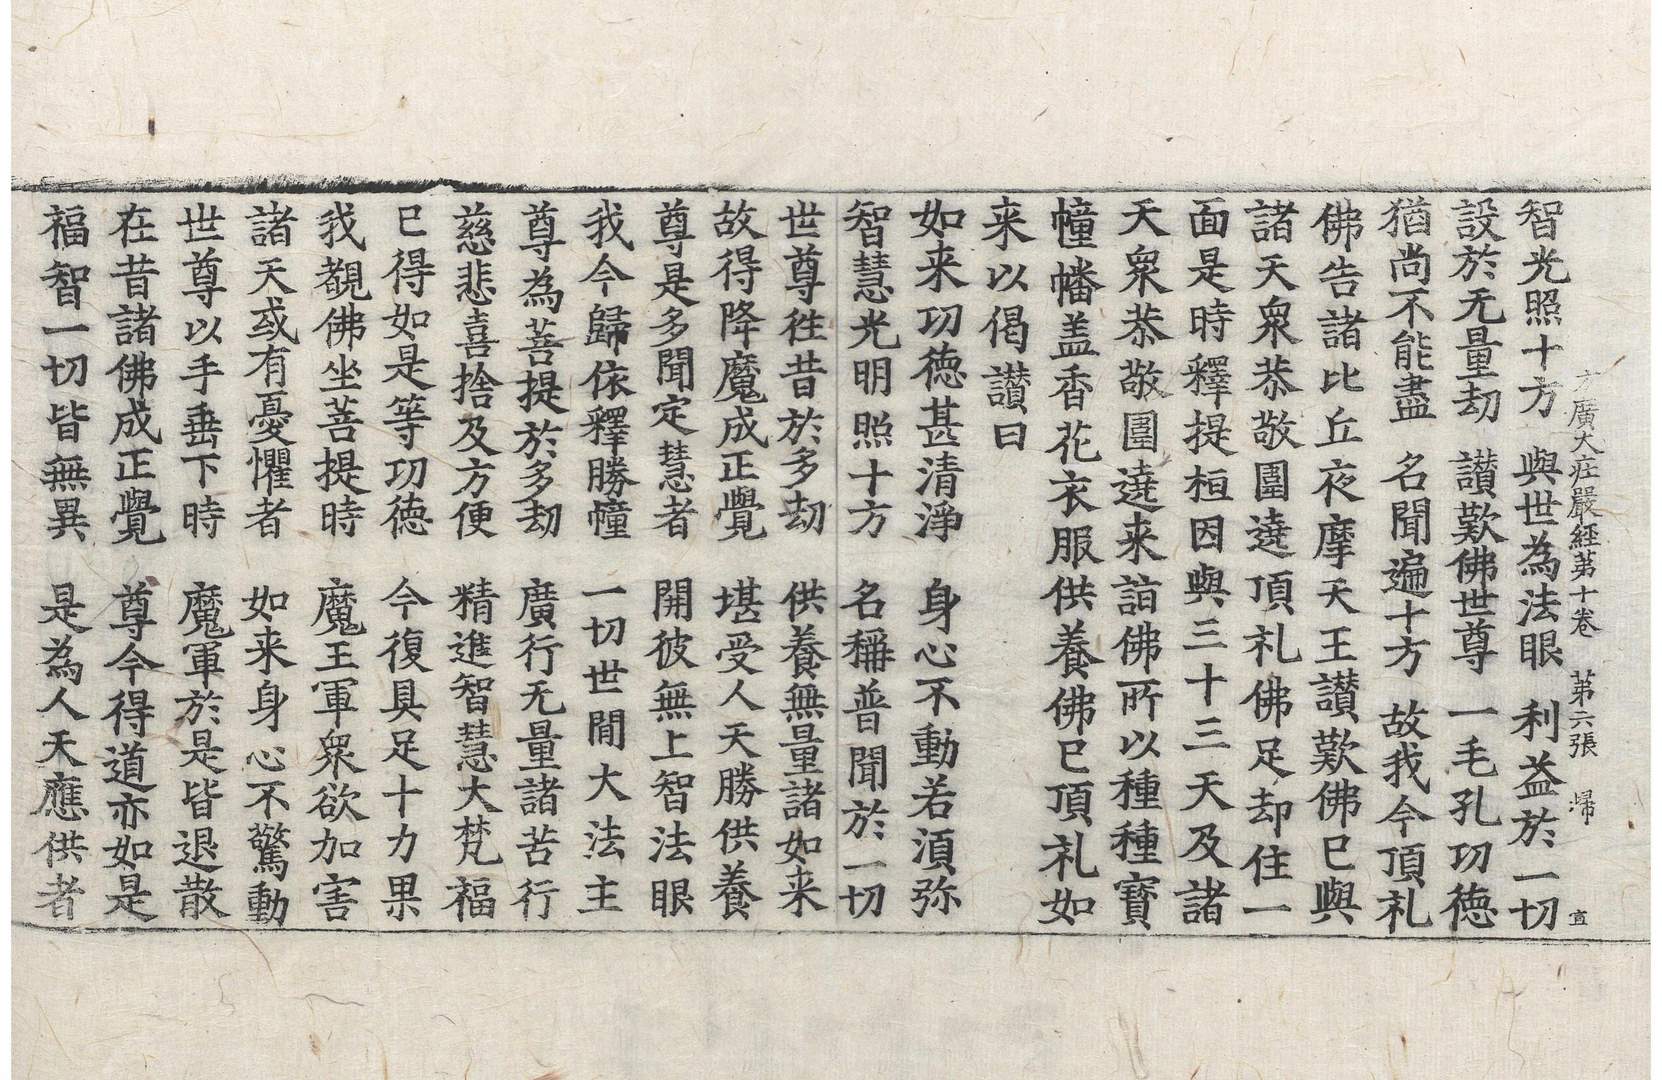 方廣大莊嚴經第十卷 第六張 歸 宣
智光照十方 與世為法眼 利益於一切
設於无量劫 讃歎佛世尊 一毛孔功德
猶尚不能盡 名聞遍十方 故我今頂礼
佛告諸比丘夜摩天王讃歎佛已與
諸天眾恭敬圍遶頂礼佛足却住一
面是時釋提桓因與三十三天及諸
天眾恭敬圍遶来詣佛所以種種寶
幢幡盖香花衣服供養佛已頂礼如
来以偈讃曰
如来功德甚清淨 身心不動若湏弥
智慧光明照十方 名稱普聞於一切
世尊徃昔於多劫 供養無量諸如来
故得降魔成正覺 堪受人天勝供養
尊是多聞定慧者 開彼無上智法眼
我今歸依釋勝幢 一切世閒大法主
尊為菩提於多劫 廣行无量諸苦行
慈悲喜捨及方便 精進智慧大梵福
已得如是等功德 今復具足十力果
我覩佛坐菩提時 魔王軍眾欲加害
諸天或有憂懼者 如来身心不驚動
世尊以手垂下時 魔軍於是皆退散
在昔諸佛成正覺 尊今得道亦如是
福智一切皆無異 是為人天應供者